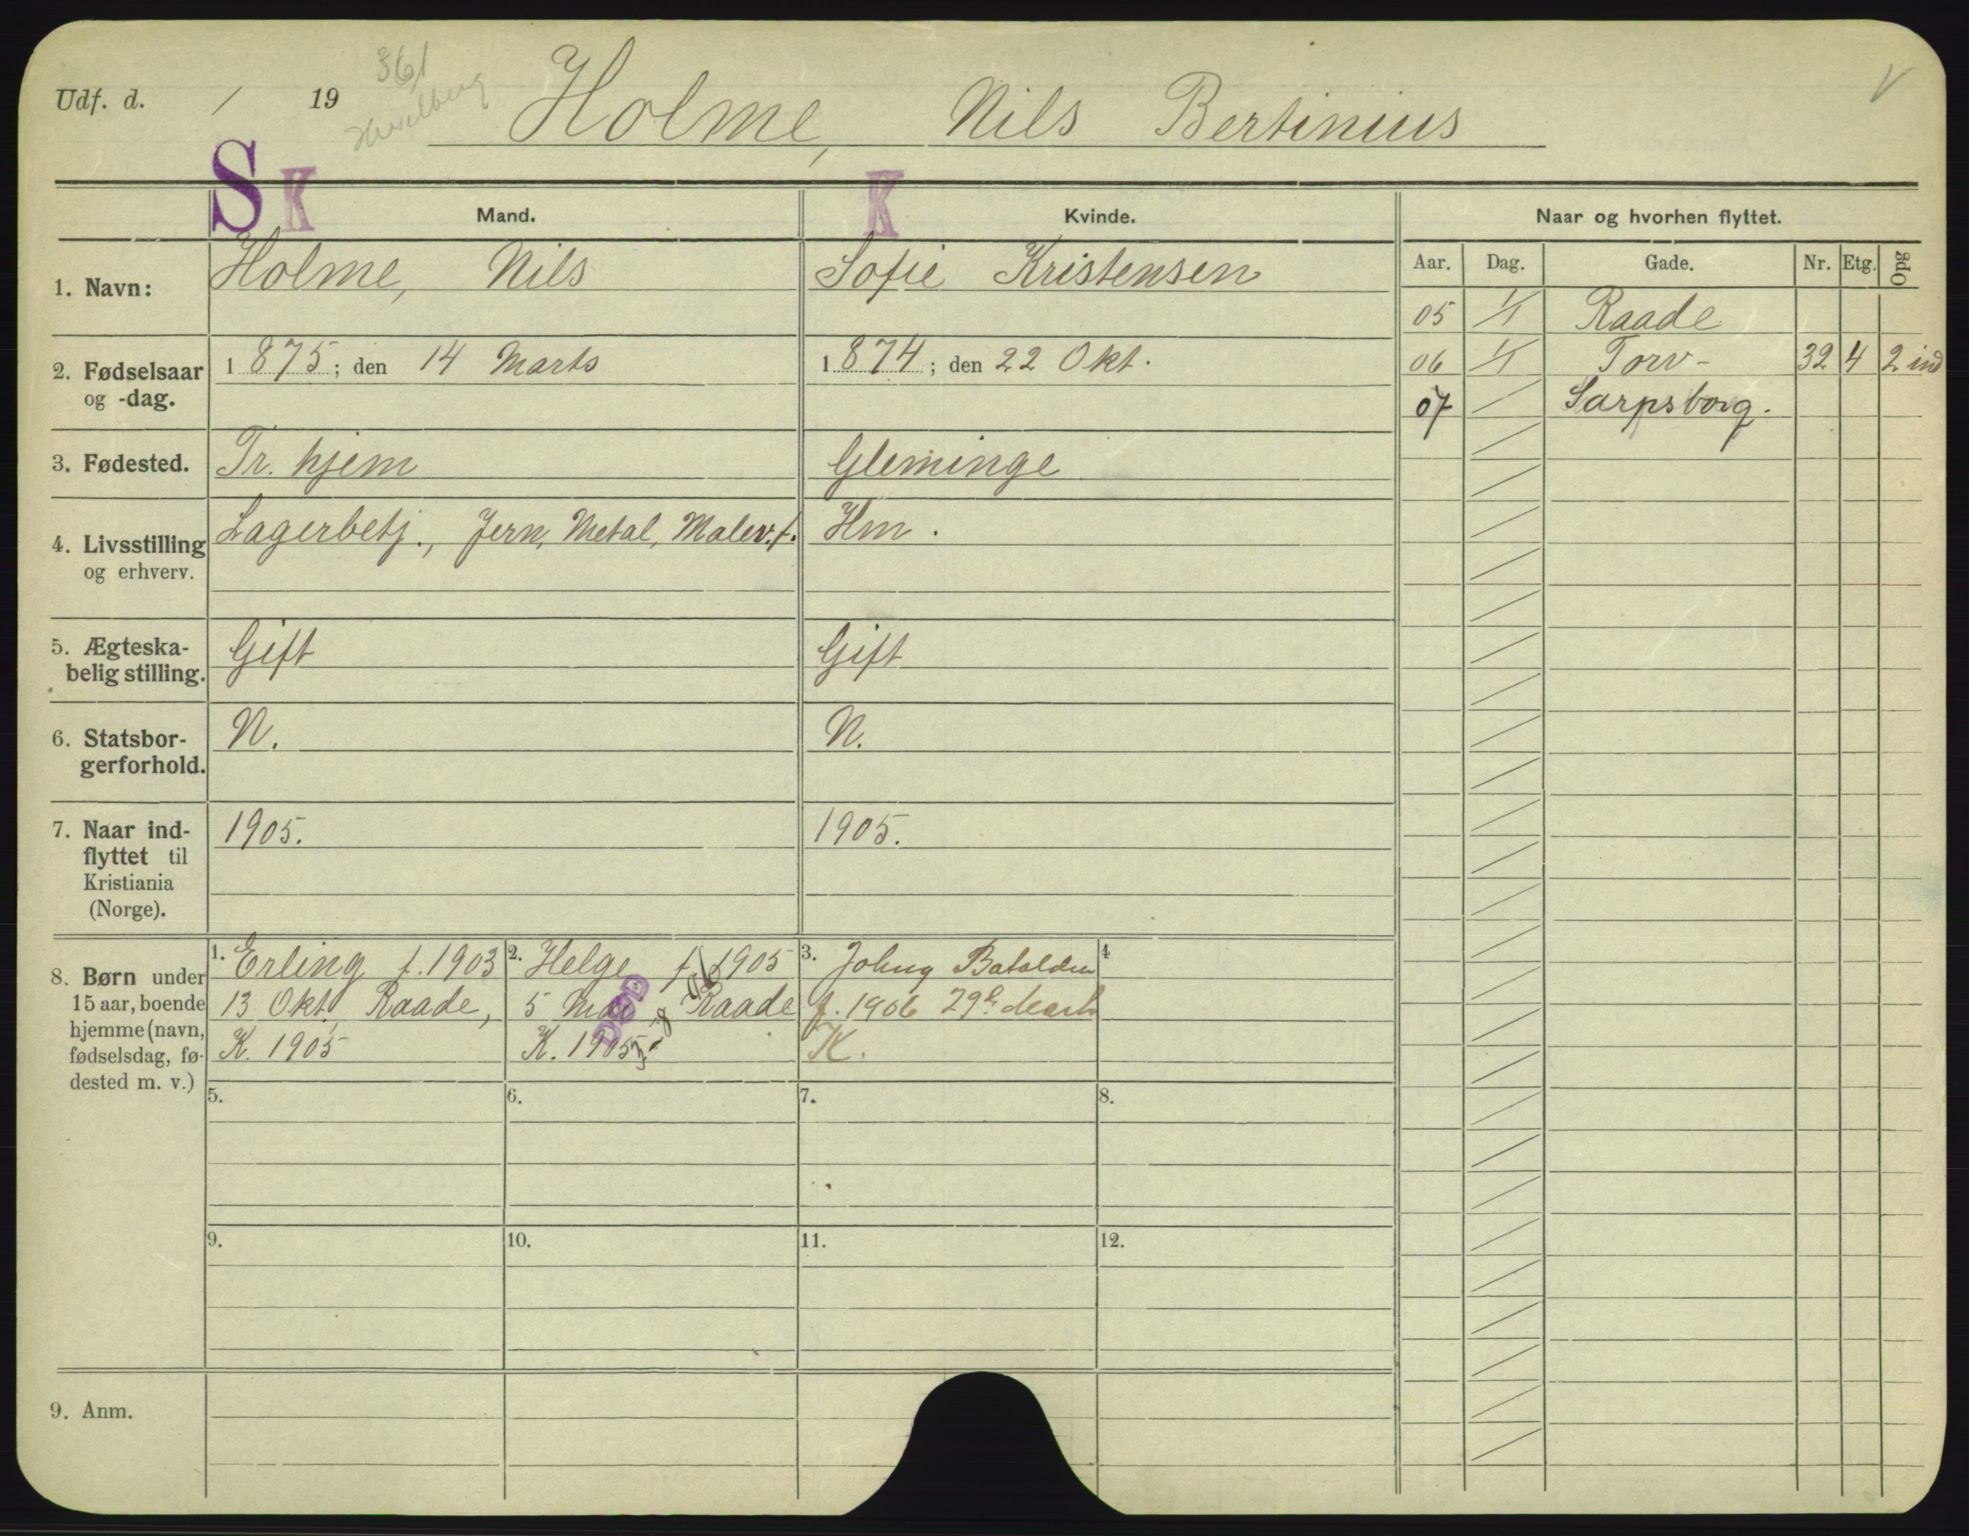 Udf. d. / 19
361
Holme, Nils Bertinius
V
S K K
Mand. Kvinde. Naar og hvorhen flyttet.
Aar. Dag. Gade. Nr. Etg. Opg
1. Navn: Holme, Nils Sofie Kristensen
05 1/1 Raade
2. Fødselsaar og -dag. 1875; den 14 Marts 1874; den 22 Okt.
06 1/1 Torv- 32 4 2 ind
07 / Sarpsborg.
3. Fødested. Tr. hjem Gleminge
4. Livsstilling og erhverv. Lagerbetj., Jern, Metal, Malerv.f. Hm.
5. Ægteska-
belig stilling. Gift Gift
6. Statsbor-
gerforhold. N. N.
7. Naar ind-
flyttet til
Kristiania
(Norge). 1905. 1905.
8. Børn under
15 aar, boende
hjemme (navn,
fødselsdag, fø-
dested m. v.)
1. Erling f. 1903
13 Okt. Raade,
K. 1905
2. Helge f. 1905
5 Mai Raade
K. 1905
DØD
3. Johny
f. 1906 29 Marts
K.
4
5. 6. 7. 8.
9. 10. 11. 12.
9. Anm.